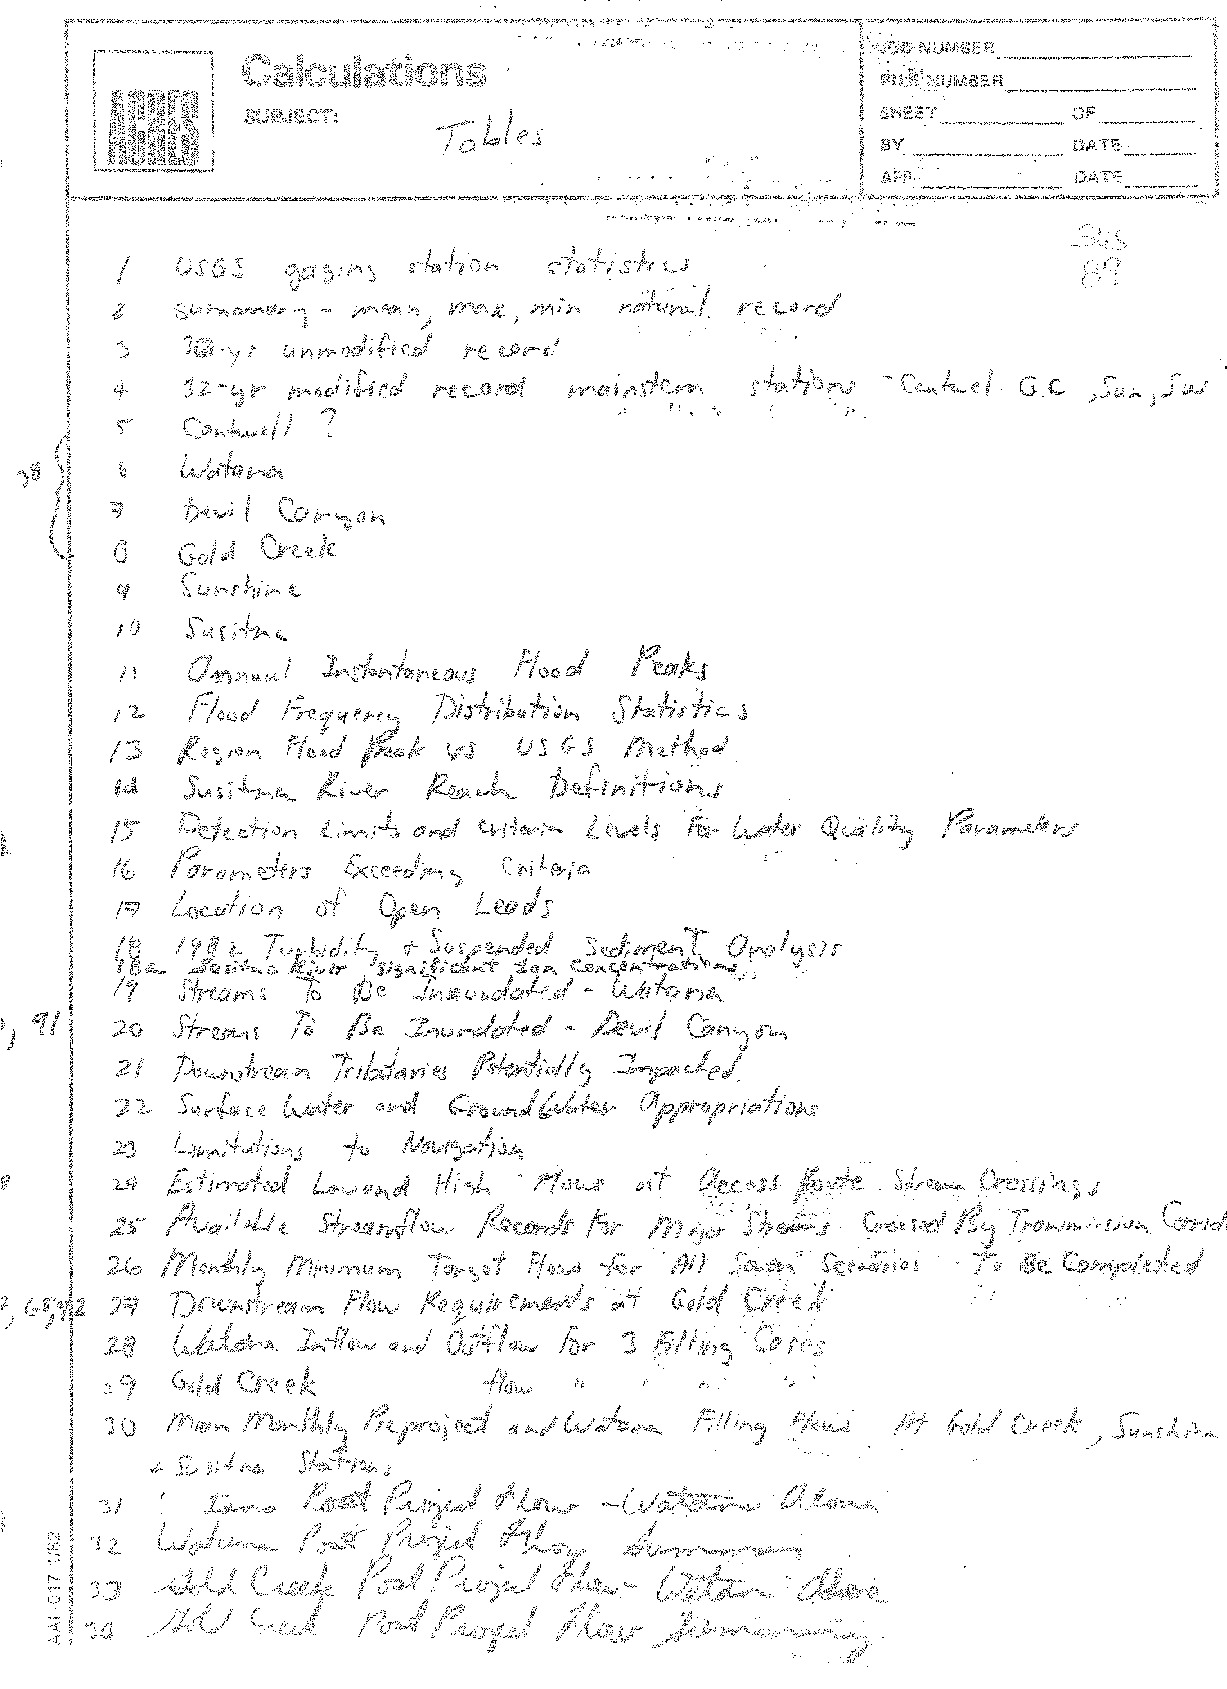 ACRES
Calculations
SUBJECT:
Tables
JOB NUMBER
FILE NUMBER
SHEET OF
BY DATE
APP DATE
89
1 USGS gaging station statistics
2 summary - mean, max, min natural record
3 30-yr unmodified record
4 32-yr modified record mainstem stations - Cantwel G.C, Sun, Sus
5 Cantwell ?
38
6 Watana
7 Devil Canyon
8 Gold Creek
9 Sunshine
10 Susitna
11 Annual Instantaneous Flood Peaks
12 Flood Frequency Distribution Statistics
13 Region Flood Peak vs USGS Method
14 Susitna River Reach Definitions
15 Detection Limits and Criteria Levels For Water Quality Parameters
16 Parameters Exceeding Criteria
17 Location of Open Leads
18 1982 Turbidity + Suspended Sediment Analysis
18a Susitna River Significant Ion Concentrations
19 Streams To Be Innundated - Watana
, 91 20 Streams To Be Inundated - Devil Canyon
21 Downstream Tributaries Potentially Impacted
22 Surface Water and Ground Water Appropriations
23 Limitations to Navigation
24 Estimated Low and High Flows at Access Route Stream Crossings
25 Available Streamflow Records For Major Streams Crossed By Transmission Corrid
26 Monthly Minimum Target Flows for All Seven Scenarios - To Be Completed
27 Downstream Flow Requirements at Gold Creek
28 Watana Inflow and Outflow for 3 Filling Cases
29 Gold Creek flow " " " "
30 Mean Monthly Preproject and Watana Filling Flows At Gold Creek, Sunshine
+ Susitna Stations
31 Post Project Flow - Watana Alone
32 Watana Post Project Flow Summary
33 Gold Creek Post Project Flow - Watana Alone
34 Gold Creek Post Project Flow Summary